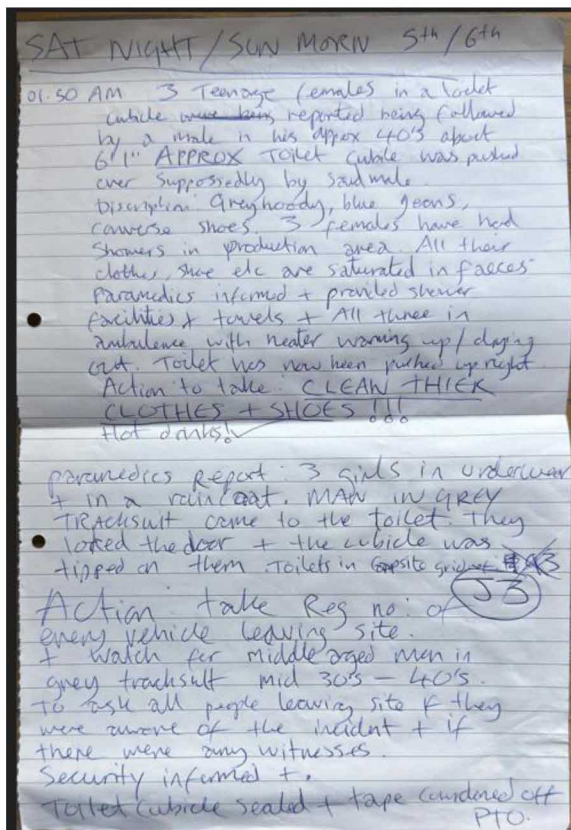 SAT NIGHT/SUN MORN 5th/6th
01.50 AM 3 Teenage females in a toilet
cubicle were being reported being followed
by a male in his approx 40's about
6'1" APPROX Toilet Cubile was pushed
over Suppossedly by said male.
Discription: Grey hoody, blue jeans,
converse shoes. 3 females have had
showers in production area. All their
clothes, shoe etc are saturated in faeces
Paramedics informed + provided shower
facilities + towels + All three in
ambulence with heater warming up/drying
out. Toilet has now been pushed upright.
Action to take: CLEAN THIER
CLOTHES + SHOES !!!
Hot drinks!
paramedics Report: 3 girls in underwear
+ in a raincoat. MAN IN GREY
TRACKSUIT came to the toilet. They
locked the door + the cubicle was
tipped on them Toilets in oposite grid
J3
Action take Reg no: of
every vehicle leaving site.
+ watch for middle aged men in
grey tracksuit mid 30's - 40's.
To ask all people leaving site if they
were aware of the incident + if
there were any witnesses.
Security informed +.
Toilet cubicle sealed + tape cordened off
PTO.